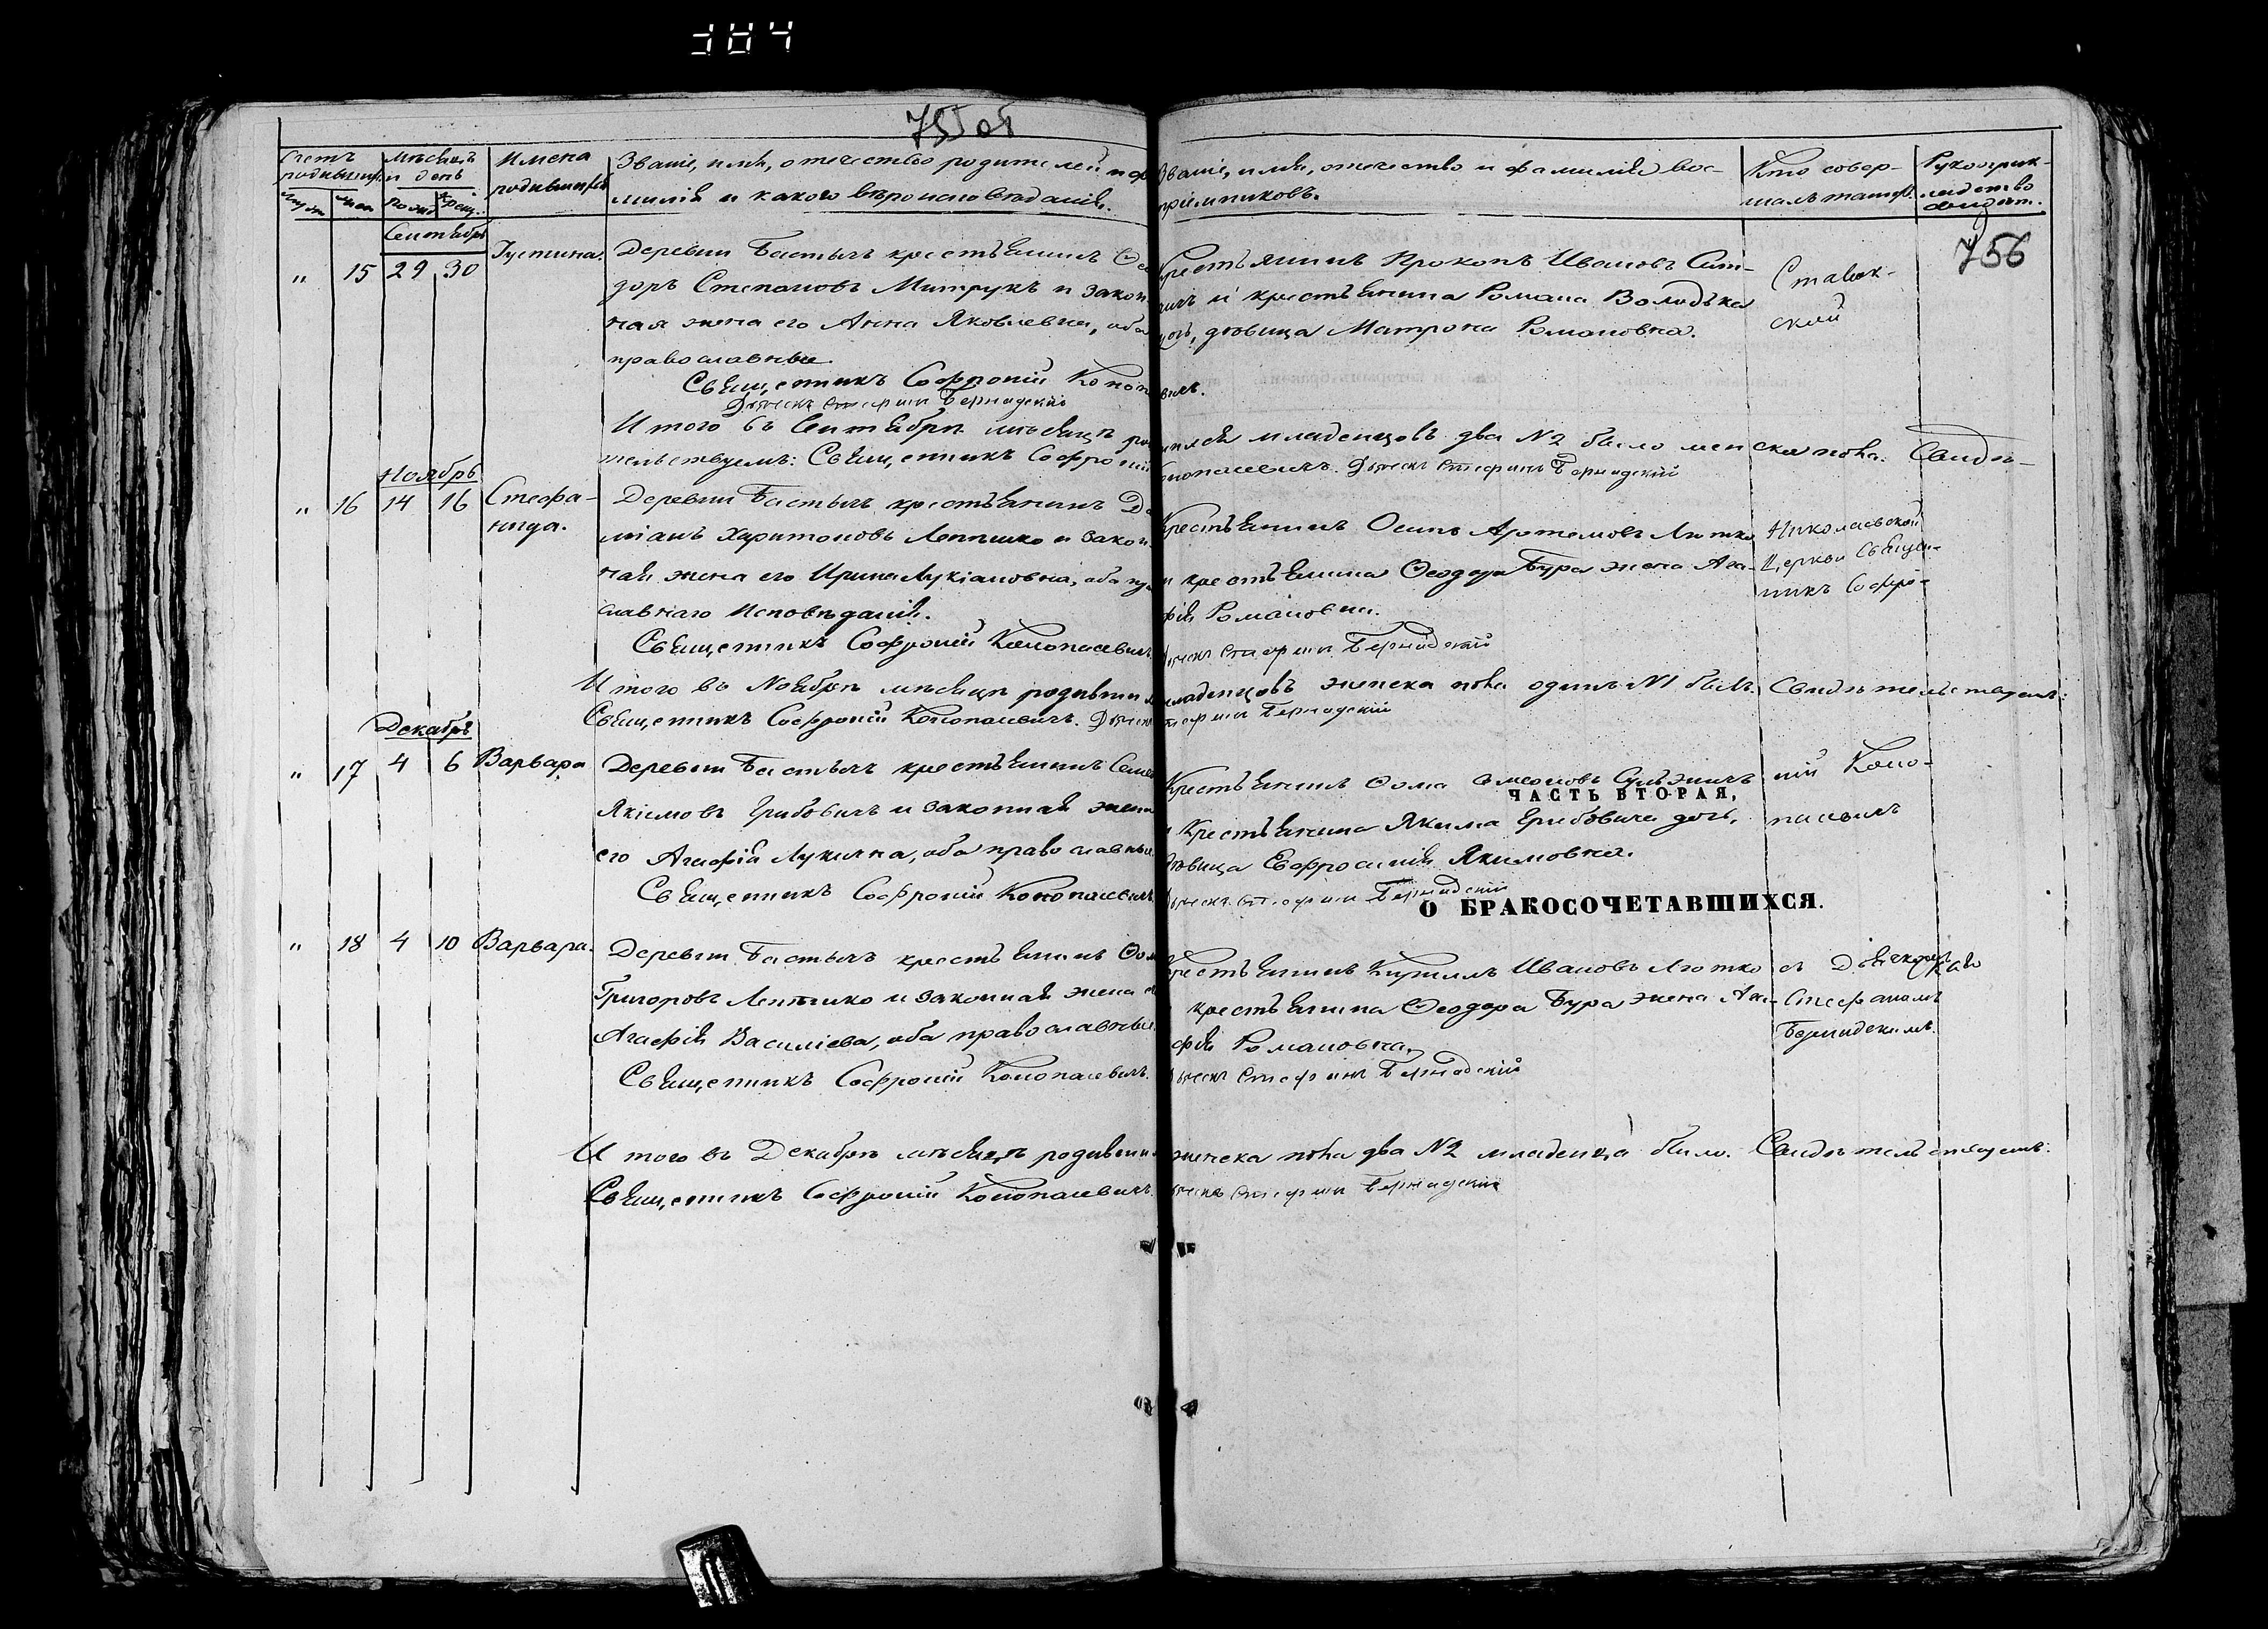 384
755 об
756
Счетъ родившихся
Мѣсяцъ и день
Имена родившихся
Званіе, имя, отечество родителей и фа-
милія и какого вѣроисповѣданія.
Званіе, имя, отечество и фамилія вос-
пріемниковъ.
Кто совер-
шалъ таин.
Рукоприк-
ладство
свидѣт.
Сентябрь
" 15 29 30 Іустина.
Деревни Бастычъ крестьянинъ
доръ Степановъ Митрукъ и закон
ная жена его Анна Яковлевна, оба
православные.
Священникъ Софроній Коноп
Дьячекъ Стефанъ Бернадскій
Крестьянинъ Прокопъ Ивановъ Сит-
и крестьянина Романа Володька
дочь, дѣвица Матрона Романовна.
вичъ.
Ставок-
ской
Итого въ Сентябрѣ мѣсяцѣ ро
младенцовъ два №2 было женска пола. Свидѣ-
тельствуемъ: Священникъ Софроній
Конопасевичъ. Дьячекъ Стефанъ Бернадскій
Ноябрь
" 16 14 16 Стефа-
нида.
Деревни Бастычъ крестьянинъ Да
міанъ Харитоновъ Лепешко и закон
ная жена его Ирина Лукіановна, оба пра
славнаго исповѣданія.
Священникъ Софроній Конопасевичъ
Крестьянинъ Осипъ Артемовъ Лютко
и крестьянина Ѳеодора Бура жена Ага-
фія Романовна.
Дьячекъ Стефанъ Бернадскій
Николаевской
Церкви Священ-
никъ Софро-
Итого въ Ноябрѣ мѣсяцѣ родивши
младенцовъ женска пола одинъ №1 былъ. Свидѣтельствуемъ:
Священникъ Софроній Конопасевичъ. Дьячекъ
Стефанъ Бернадскій
Декабрь
" 17 4 6 Варвара
Деревни Бастычъ крестьянинъ Семе
Якимовъ Грибовичъ и законная жена
его Агафія Лукична, оба православные.
Священникъ Софроній Конопасевичъ
Крестьянинъ Ѳома Симеоновъ
ЧАСТЬ ВТОРАЯ,
и Крестьянина Якима Грибовича дочь,
дѣвица Евфросинія Якимовна.
Дьячекъ Стефанъ Бернадскій
О БРАКОСОЧЕТАВШИХСЯ.
ній Коно-
пасевичъ
" 18 4 10 Варвара.
Деревни Бастычъ крестьянинъ Ѳом
Григоровъ Лепешко и законная жена е
Агафія Василіева, оба православные.
Священникъ Софроній Конопасевичъ.
Крестьянинъ Кириллъ Ивановъ Лютко
и крестьянина Ѳеодора Бура жена Ага-
фія Романовна.
Дьячекъ Стефанъ Бернадскій
съ Дьячкомъ
Стефаномъ
Бернадскимъ.
Итого въ Декабрѣ мѣсяцѣ родивши
женска пола два №2 младенца было. Свидѣтельствуемъ:
Священникъ Софроній Конопасевичъ.
Дьячекъ Стефанъ Бернадскій